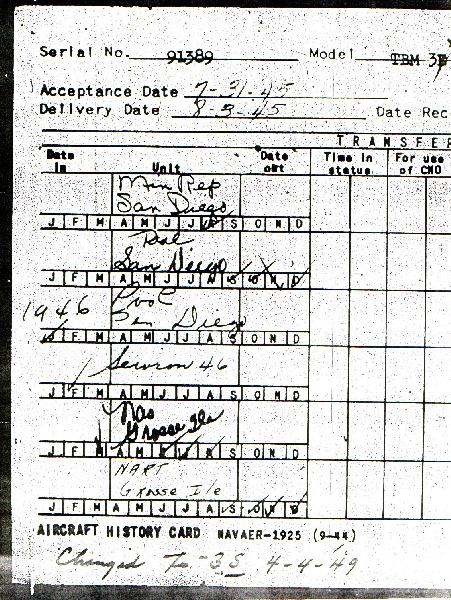 Serial No. 91389 Model TBM 3E
Acceptance Date 7-31-45
Delivery Date 8-3-45 Date Rec
TRANSFER
Date in Unit Date out Time in status For use of CNO
San Diego
J F M A M J J A S O N D
Pool
San Diego
J F M A M J J A S O N D
1946 Pool
San Diego
J F M A M J J A S O N D
Servron 46
J F M A M J J A S O N D
Nas
Grosse Ile
J F M A M J J A S O N D
NART
Grosse Ile
J F M A M J J A S O N D
AIRCRAFT HISTORY CARD NAVAER-1925 (9-44)
Changed To -3S 4-4-49